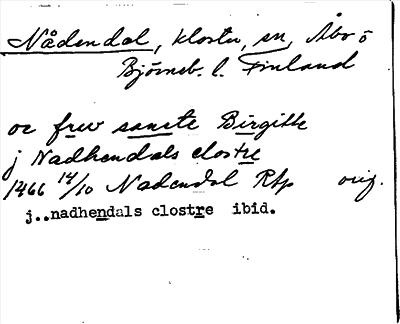 Nådendal, kloster, sn, Åbo o
Björneb. l. Finland
oc frw sancte Birgitte
j Nadhendals clostre
1466 14/10 Nadendal Rap orig.
j..nadhendals clostre ibid.